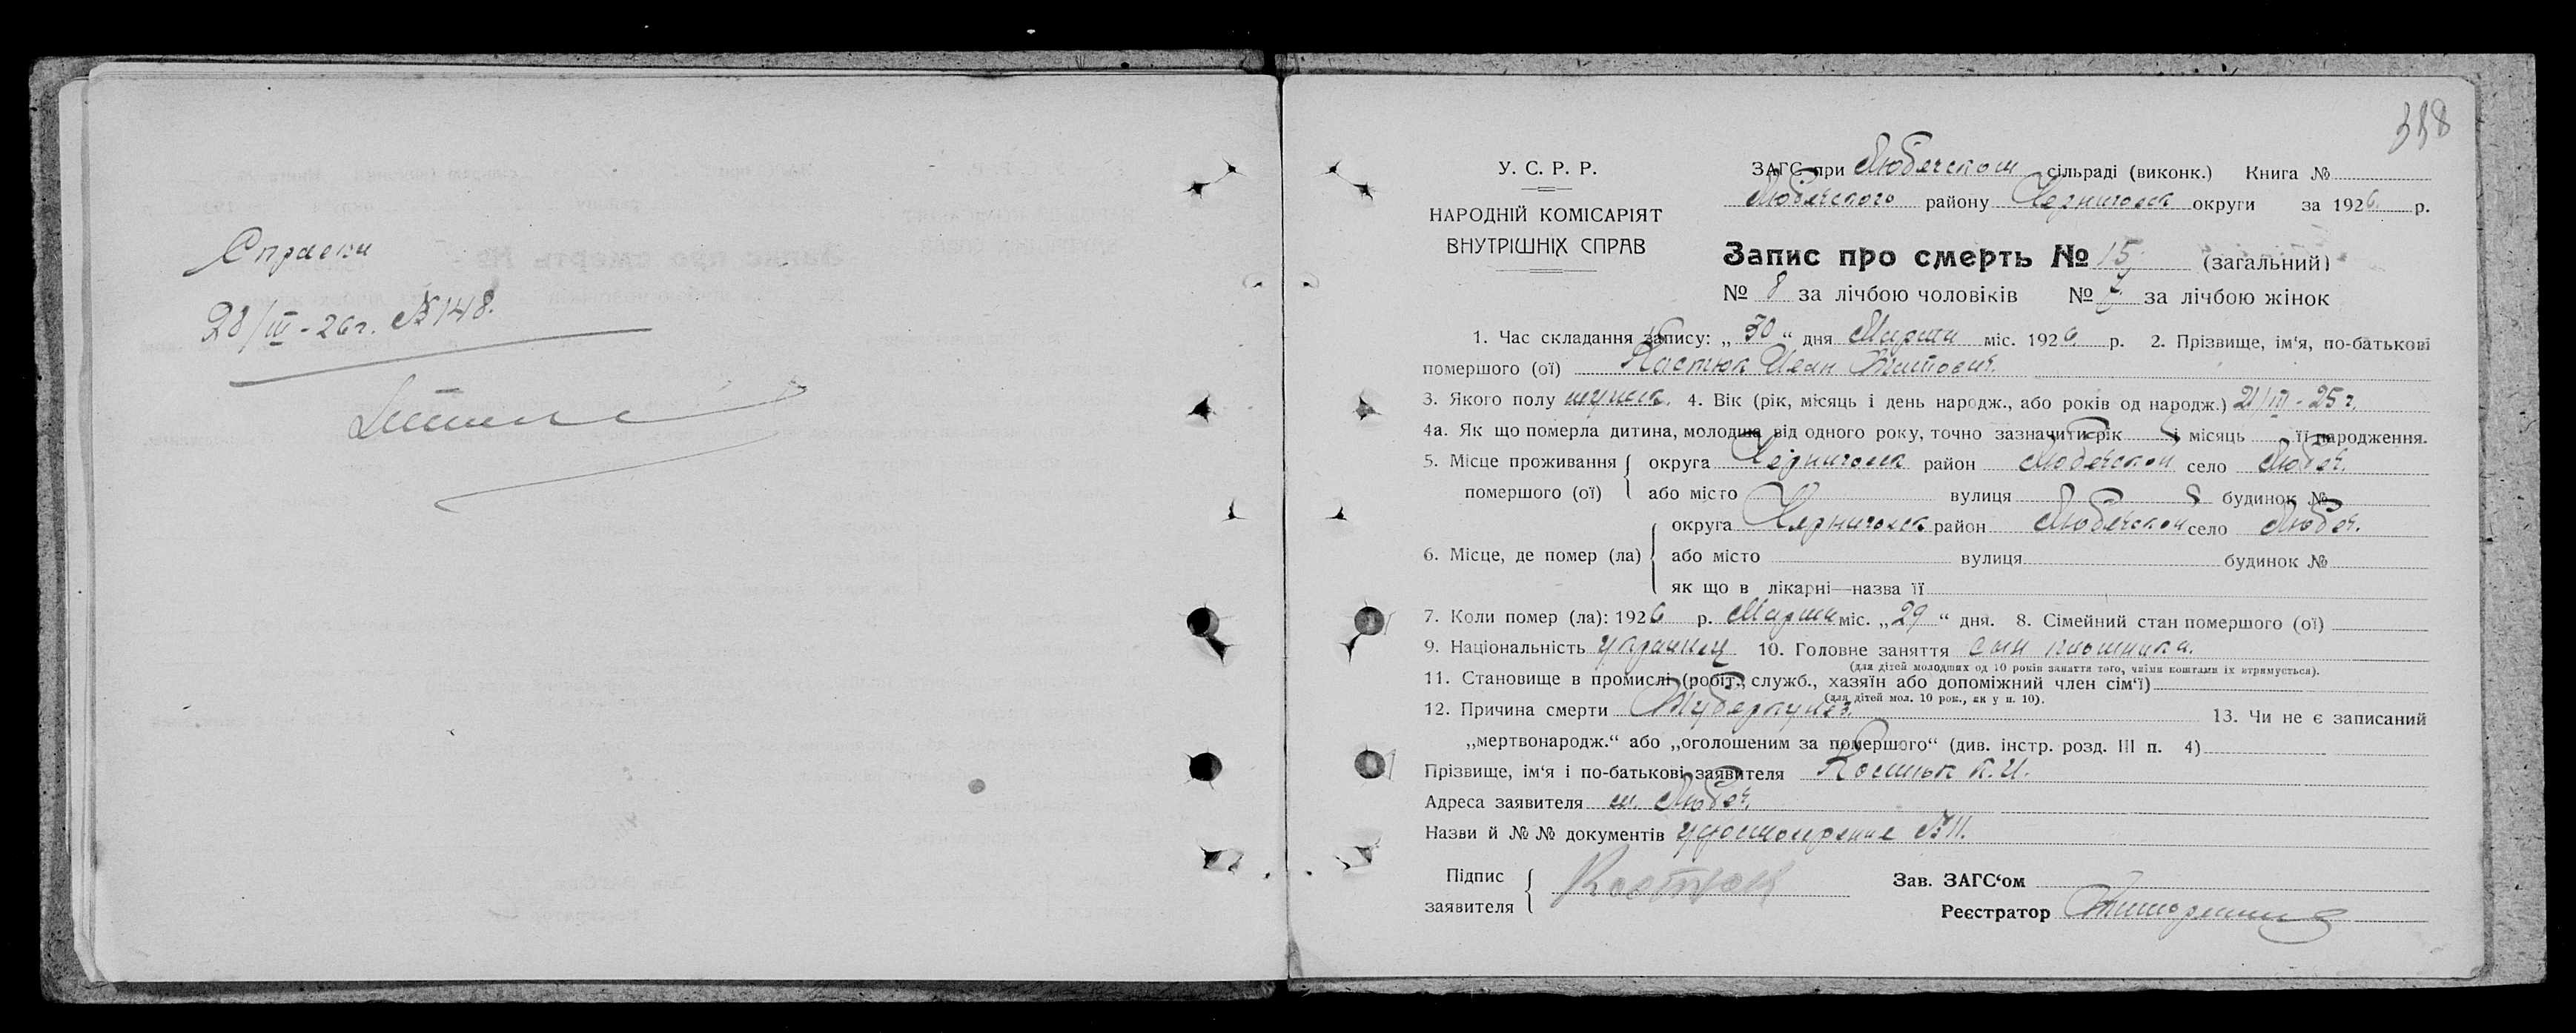 Справки
28/III - 26 г. № 148.
338
У. С. Р. Р.
НАРОДНІЙ КОМІСАРІЯТ
ВНУТРІШНІХ СПРАВ
ЗАГС при Любечском сільраді (виконк.) Книга №
Любечского району Черниговск округи за 1926 р.
Запис про смерть № 15 (загальний)
№ 8 за лічбою чоловіків № 7 за лічбою жінок
1. Час складання запису: „ 30 “ дня Марта міс. 1926 р. 2. Прізвище, ім‘я, по-батькові
помершого (ої) Костюк Иван Титович.
3. Якого полу мужск. 4. Вік (рік, місяць і день народж., або років од народж.) 21/III - 25 г.
4а. Як що померла дитина, молодша від одного року, точно зазначити рік і місяць її народження.
5. Місце проживання помершого (ої) округа Черниговск район Любечской село Любеч.
або місто вулиця будинок №
6. Місце, де помер (ла) округа Черниговск район Любечской село Любеч.
або місто вулиця будинок №
як що в лікарні—назва її
7. Коли помер (ла): 1926 р. Марта міс. „ 29 “ дня. 8. Сімейний стан помершого (ої)
9. Національність украинец 10. Головне заняття сын
(для дітей молодших од 10 років заняття того, чиїми коштами їх втримується).
11. Становище в промислі (робіт., служб., хазяїн або допоміжний член сім‘ї)
(для дітей мол. 10 рок., як у п. 10).
12. Причина смерти Туберкулез 13. Чи не є записаний
„мертвонародж.“ або „оголошеним за помершого“ (див. інстр. розд. III п. 4)
Прізвище, ім‘я і по-батькові заявителя Костюк Т. И.
Адреса заявителя м. Любеч.
Назви й № № документів удостоверение № 11.
Підпис заявителя Костюк
Зав. ЗАГС‘ом
Реєстратор